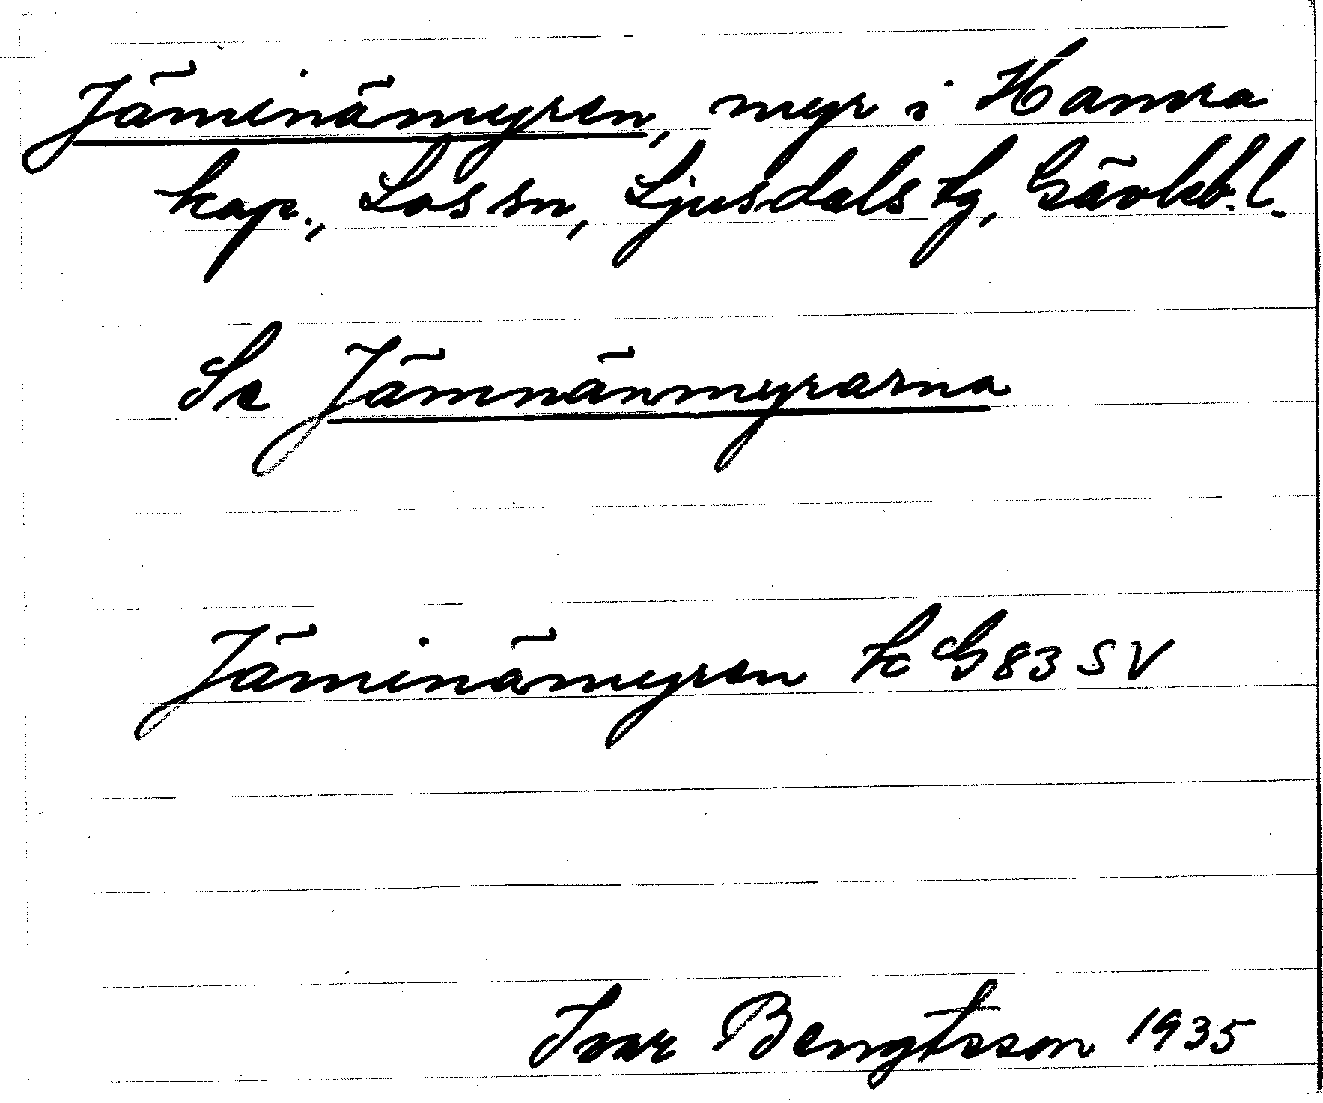 Jäminämyren, myr i Hamra
kap., Los sn, Ljusdals tg, Gävleb. l.
Se Jämnänmyrarna
Jäminämyren k G 83 SV
Ivar Bengtsson 1935